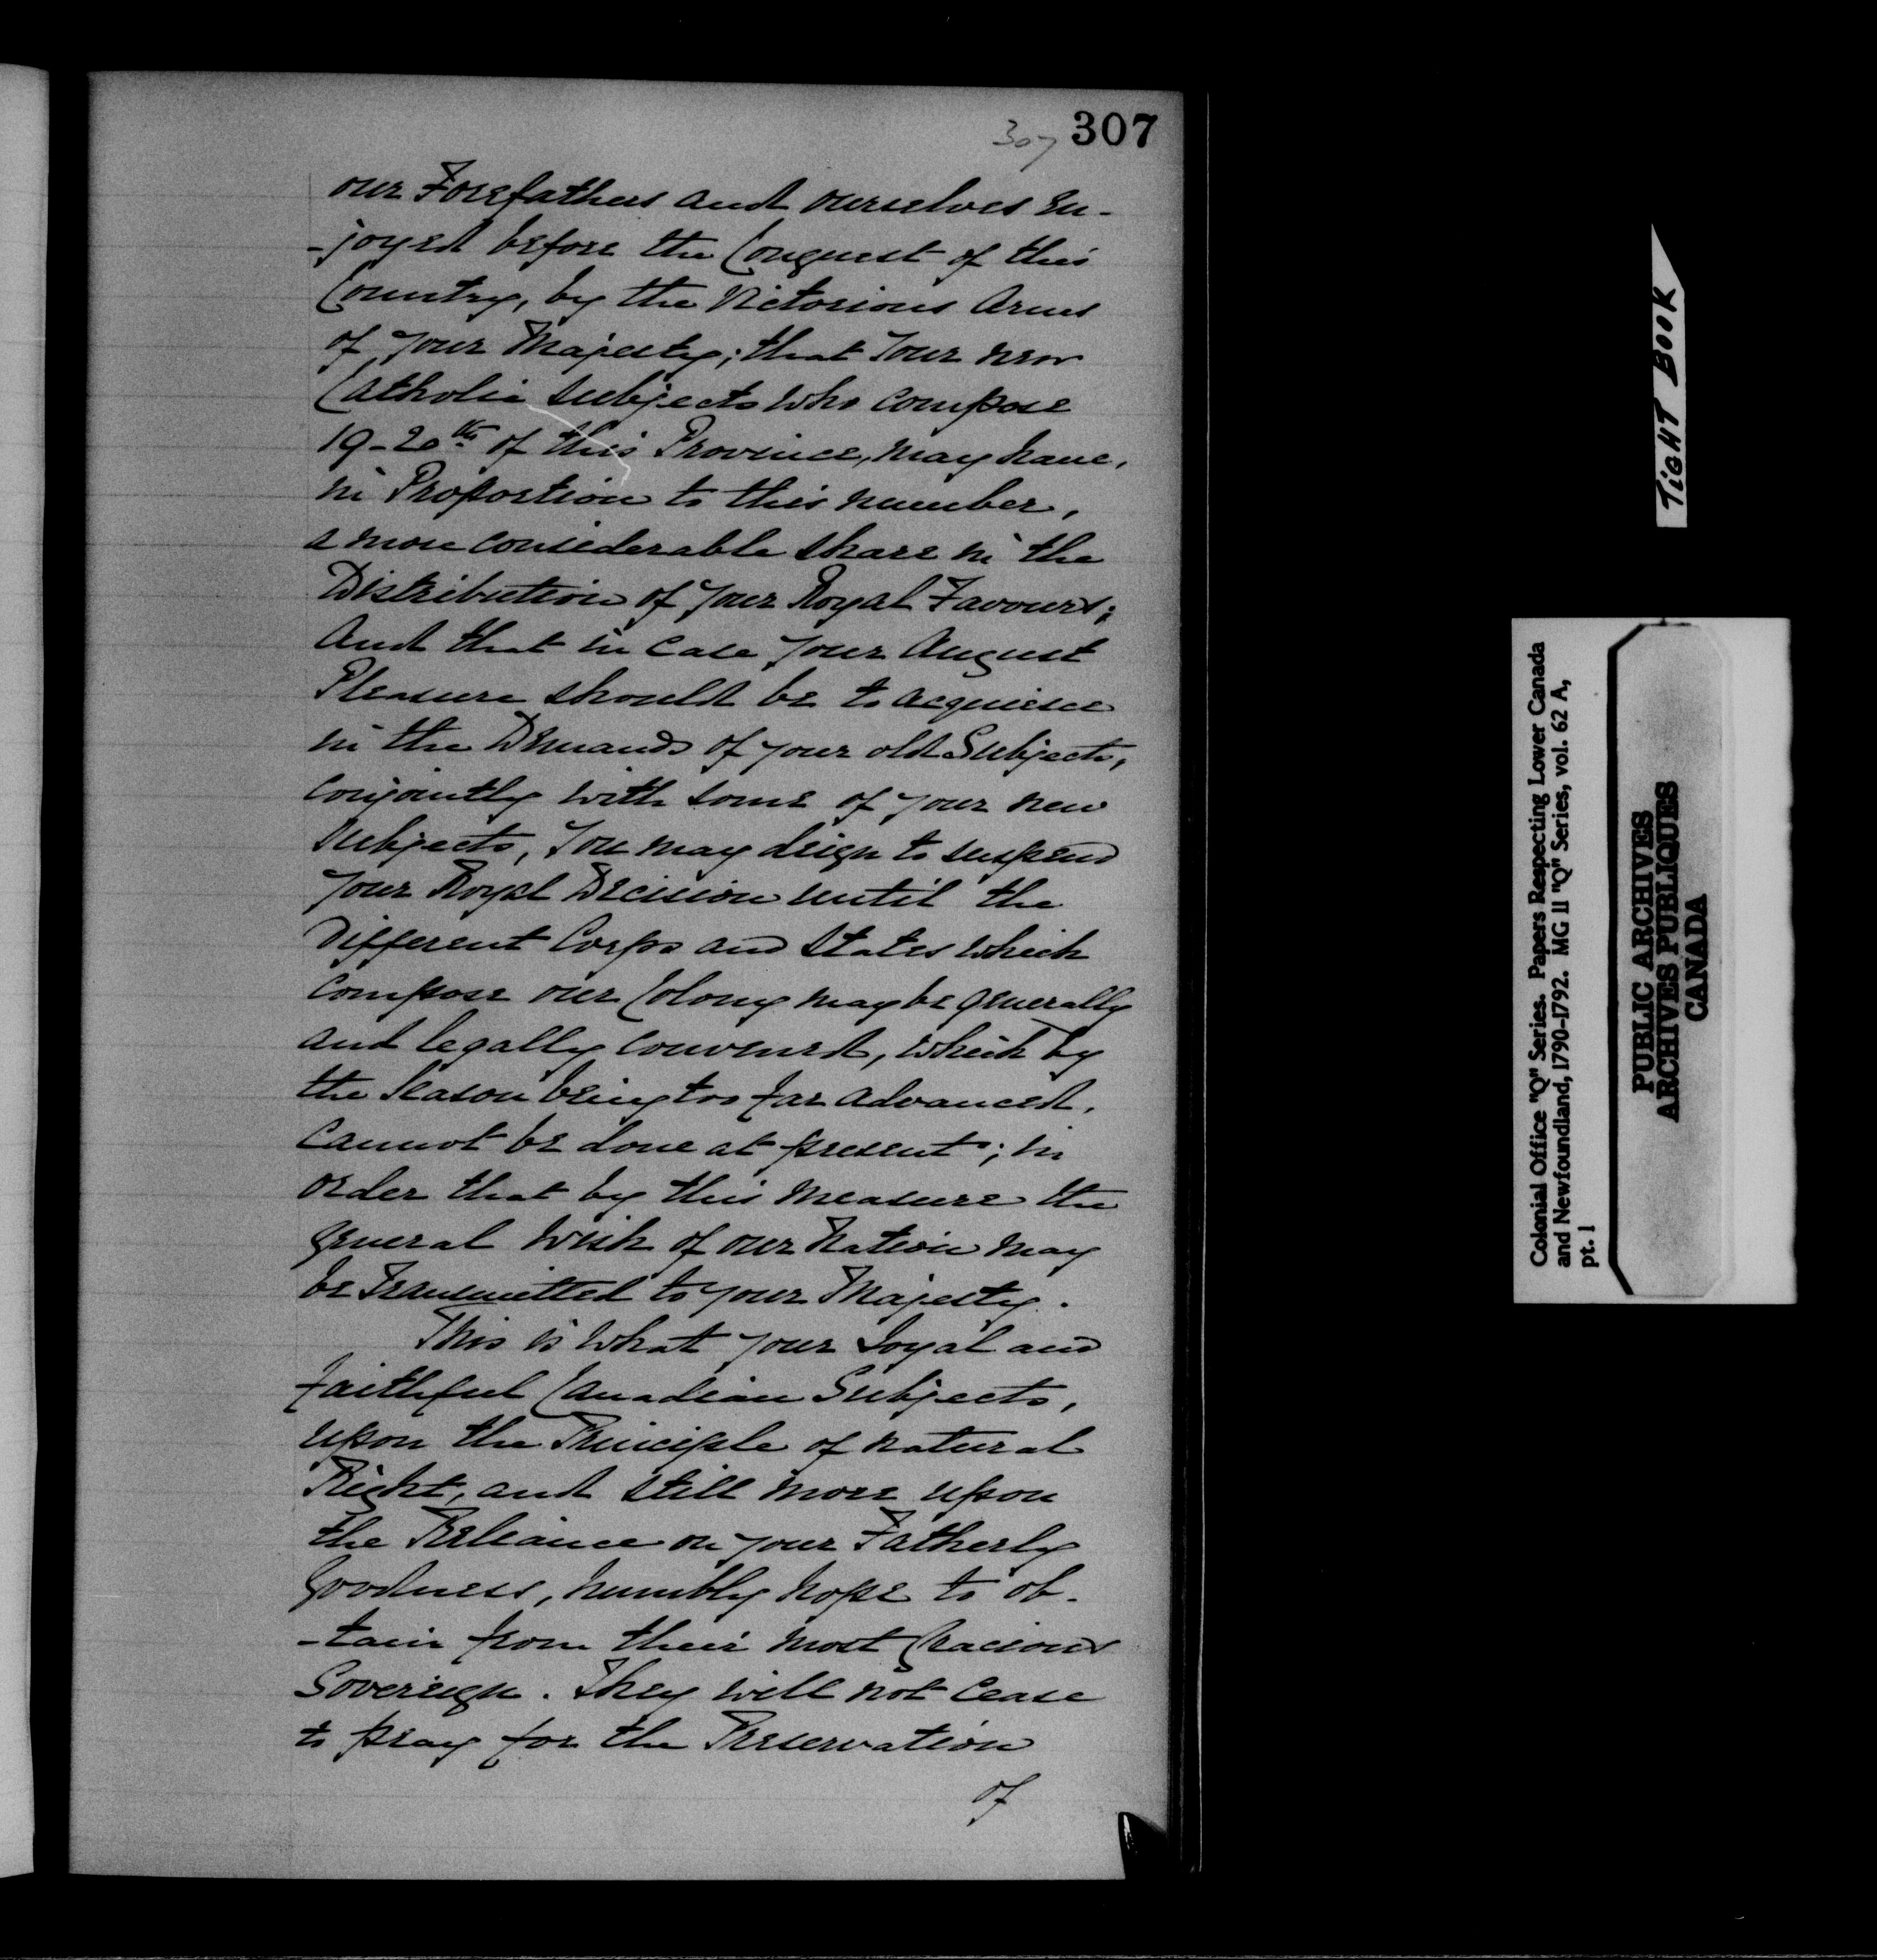 307 307
our Forefathers and ourselves en-
-joyed before the Conquest of this
Country, by the Victorious Arms
of your Majesty; that Your new
Catholic subjects who compose
19-20th of this Province, may have,
in Proportion to this number,
a more considerable share in the
Distribution of your Royal Favours;
And that in case your August
Pleasure should be to acquiesce
in the Demands of your old Subjects,
conjointly with some of your new
subjects, You may deign to suspend
your Royal Decision until the
Different Corps and States which
compose our Colony may be generally
and legally convened, which by
the Season being too far advanced,
cannot be done at present; in
order that by this measure the
general wish of our Nation may
be Transmitted to your Majesty.
This is what your Loyal and
faithful Canadian Subjects,
upon the Principle of natural
Right, and still more upon
the Reliance on your Fatherly
Goodness, humbly hope to ob-
-tain from their most Gracious
Sovereign. They will not cease
to pray for the Preservation
of
TIGHT BOOK
Colonial Office "Q" Series. Papers Respecting Lower Canada
and Newfoundland, 1790-1792. MG 11 "Q" Series, vol. 62 A,
pt. 1
PUBLIC ARCHIVES
ARCHIVES PUBLIQUES
CANADA